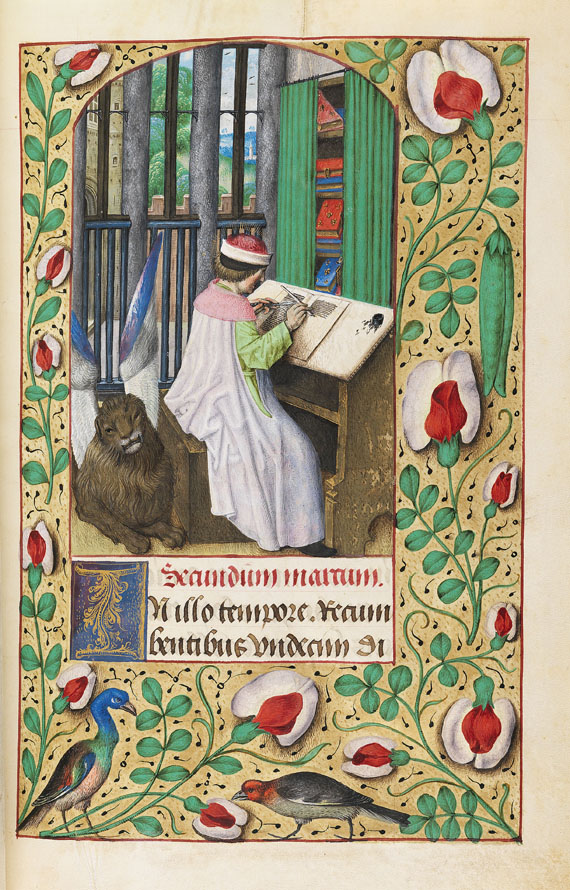 Secundum marcum.
IN illo tempore. Recum
bentibus vndecim di